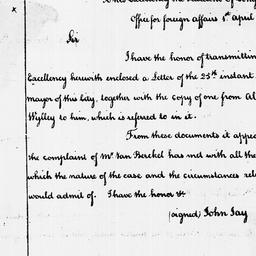 Office for foreign affairs 4th april
Sir
I have the honor of transmittin
Excellency herewith enclosed a Letter of the 25th instant
mayor of this City, together with the copy of one from Al
Wylley to him, which is referred to in it.
From these documents it appea
the complaint of Mr Van Berckel has met with all the
which the nature of the case and the circumstances rela
would admit of. I have the honor &c.
(signed) John Jay